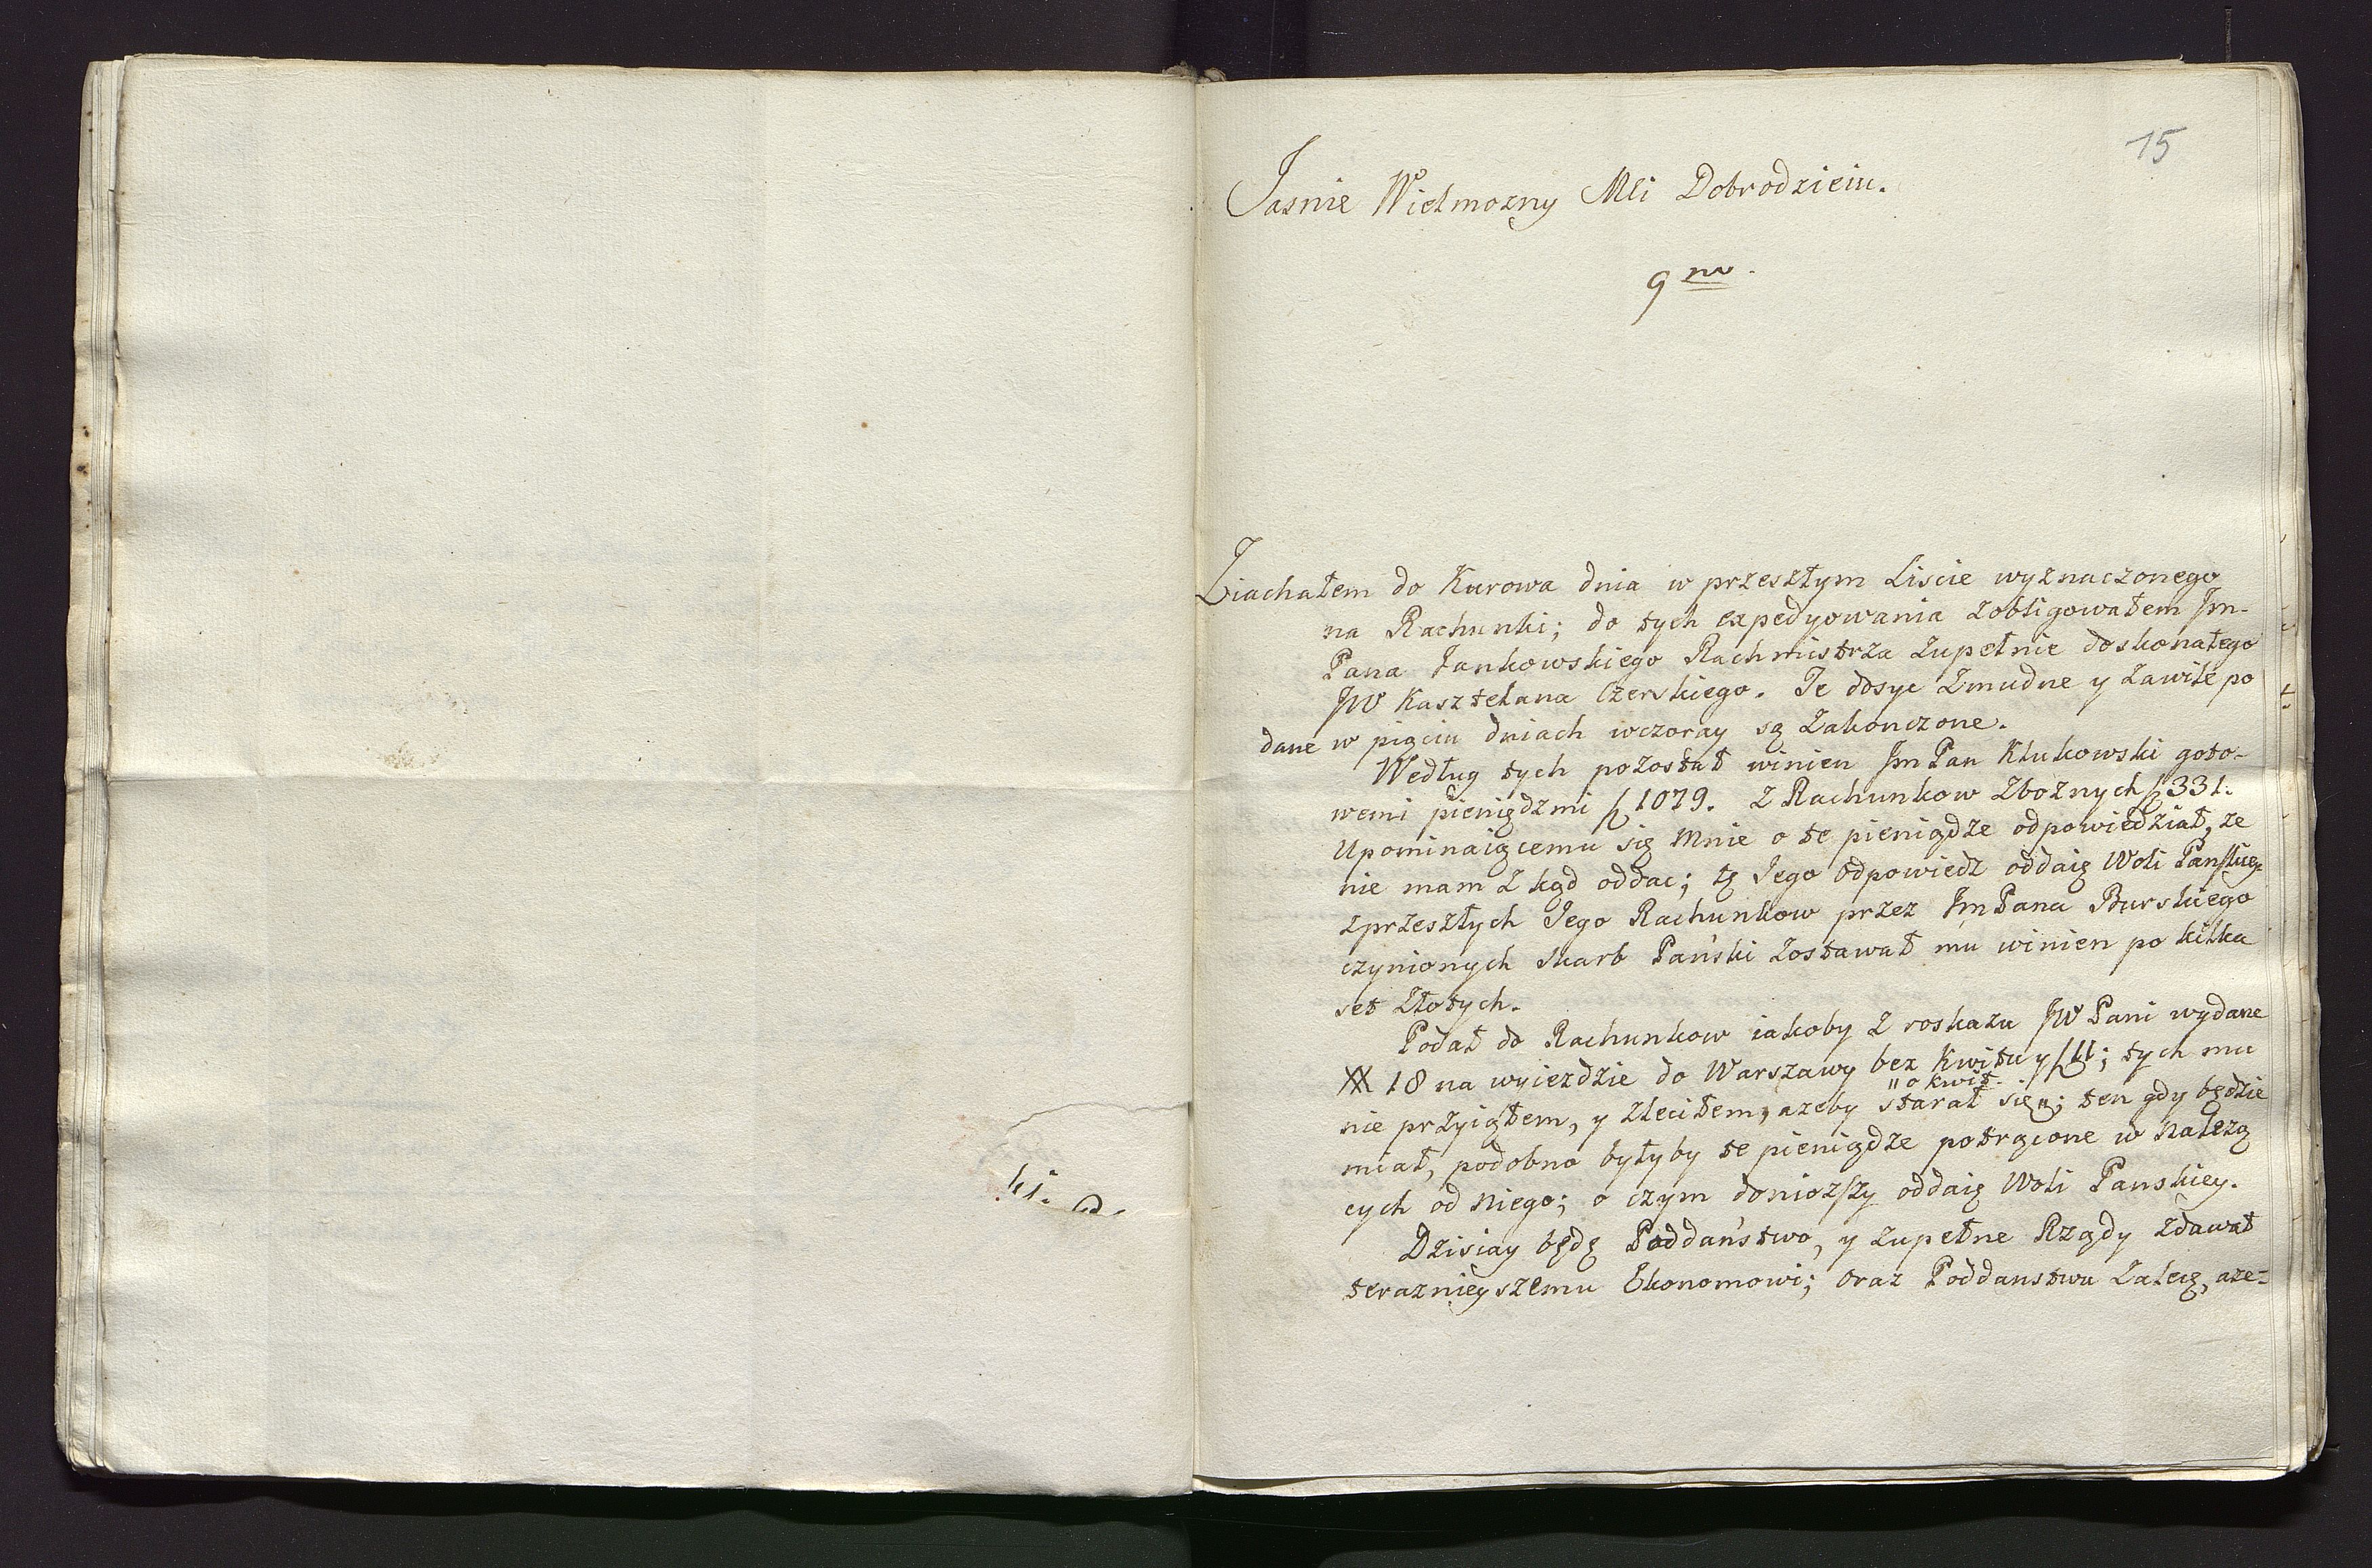 15
Jasnie Wielmozny Mci Dobrodzieiu.
9no.
Ziachałem do Kurowa dnia w przeszłym Liscie wyznaczonego
na Rachunki; do tych expedyowania zobligowałem Jm-
Pana Jankowskiego Rachmistrza zupełnie doskonałego
JW Kasztelana Czerskiego. Te dosyc zmudne y zawiłe po
dane w pięciu dniach wczoray są zakonczone.
Według tych pozostał winien JmPan Klukowski goto-
wemi pieniędzmi f 1079. z Rachunkow Zboznych f 331.
Upominaiącemu się mnie o te pieniądze odpowiedział, ze
nie mam z kąd oddac; tę Jego odpowiedz oddaię Woli Panskiey
zprzeszłych Jego Rachunkow przez JmPana Burskiego
czynionych skarb Pański zostawał mu winien po kilka
set złotych.
Podał do Rachunkow iakoby z roskazu JW Pani wydane
18 na wyiezdzie do Warszawy bez Kwitu y f 11; tych mu
"o kwit.
nie przyiąłem, y zleciłem, azeby starał się "; ten gdy będzie
miał, podobno byłyby te pieniądze potrącone w nalezą
cych od niego; o czym doniozszy oddaię Woli Panskiey.
Dzisiay będę Poddaństwo, y zupełne Rządy zdawał
teraznieyszemu Ekonomowi; oraz Poddanstwu zalecę, aze-